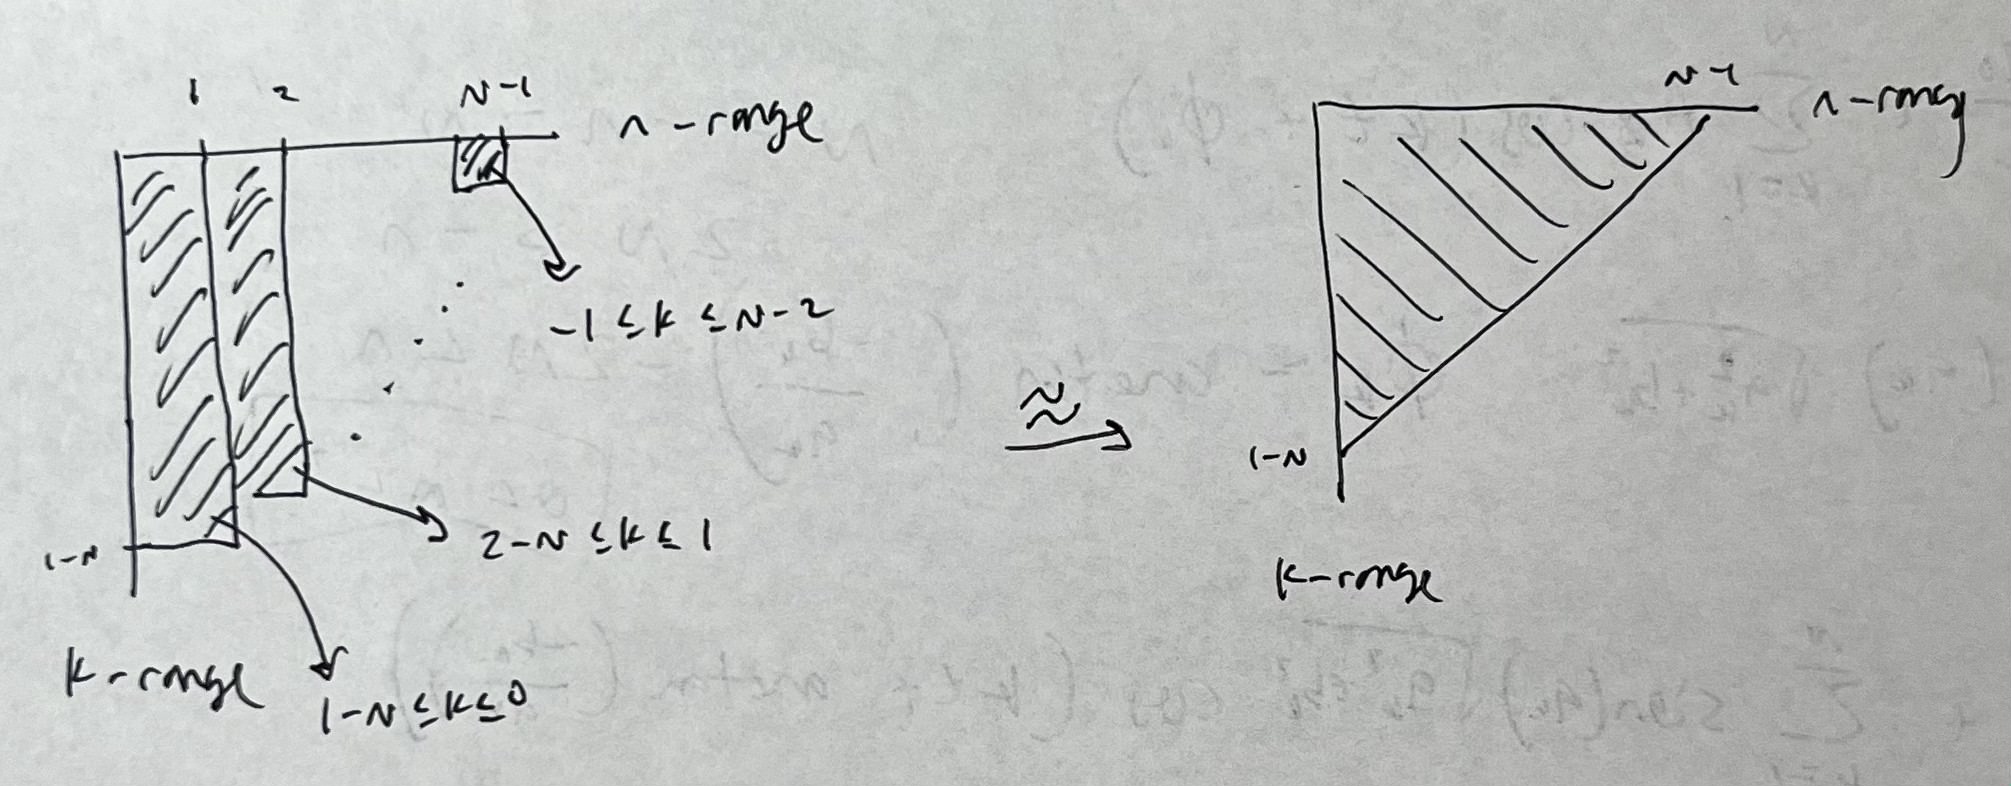 1 2 N-1 n-range
-1 ≤ k ≤ N-2
2-N ≤ k ≤ 1
1-N
k-range
1-N ≤ k ≤ 0
≈
N-1 n-range
1-N
k-range